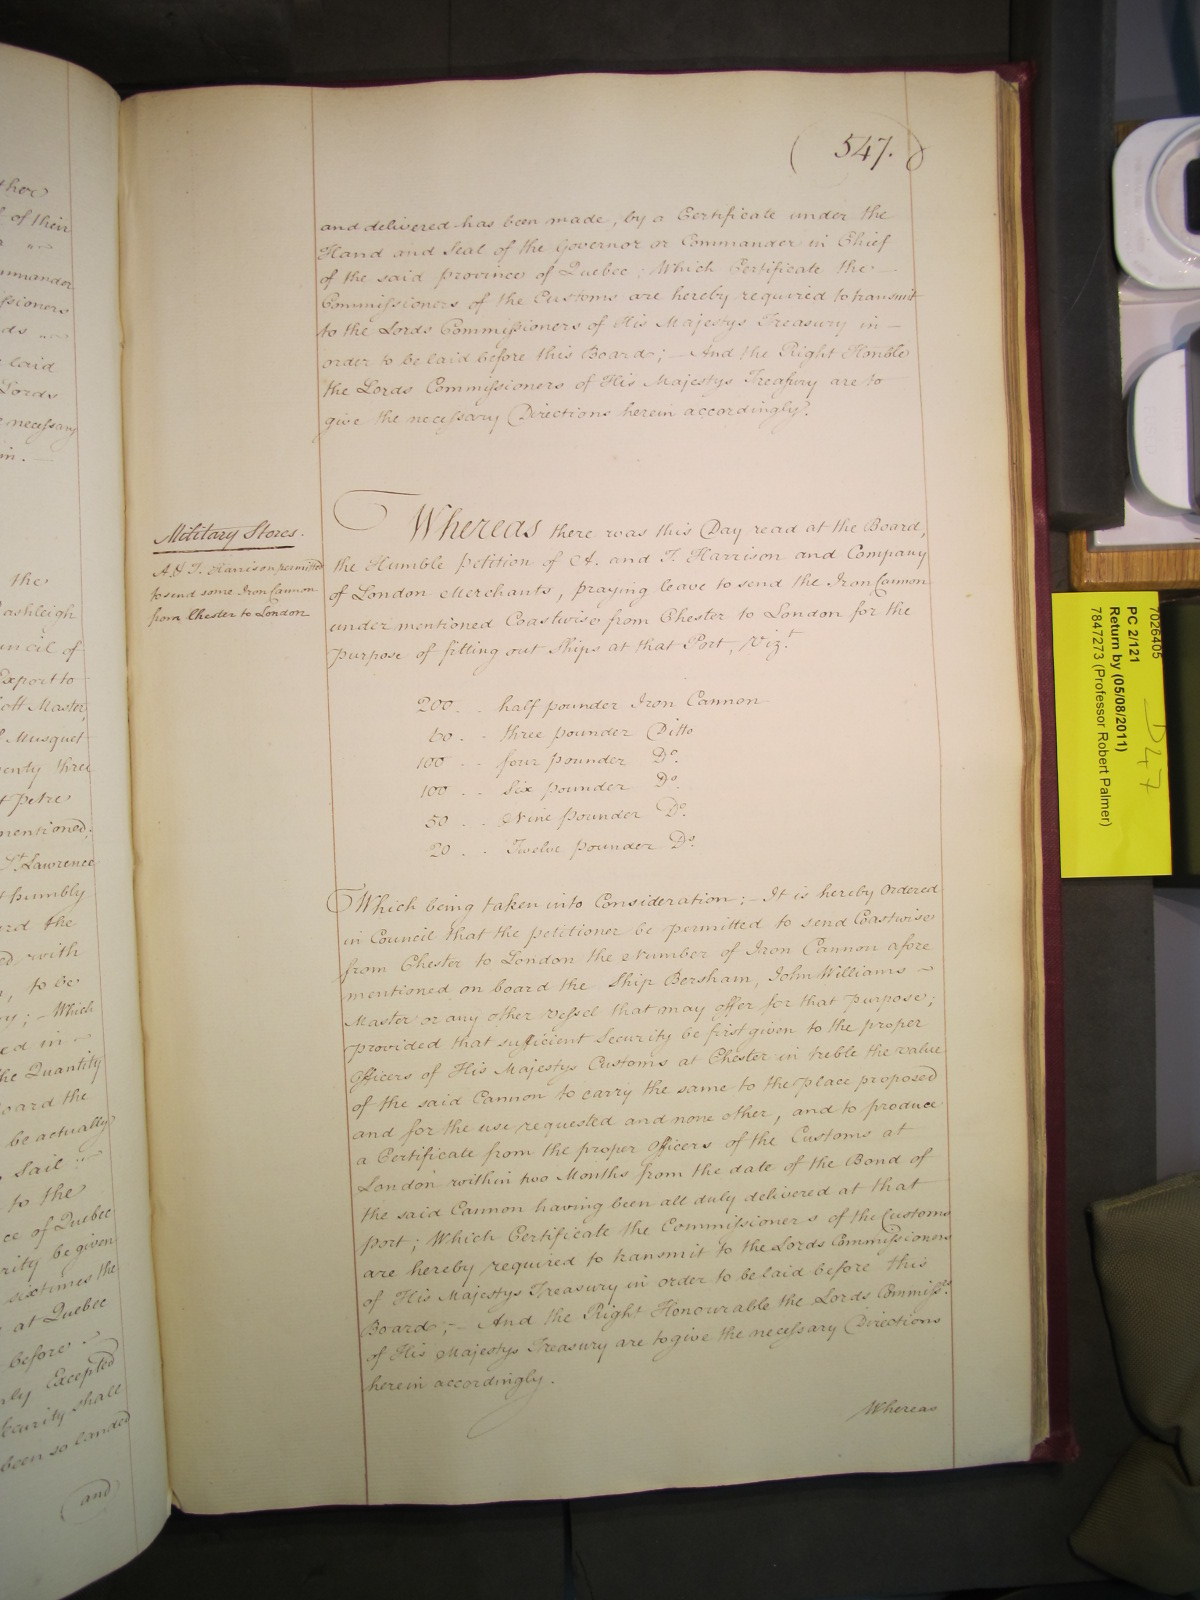 547.
and delivered has been made, by a Certificate under the
Hand and Seal of the Governor or Commander in Chief
of the said province of Quebec; Which Certificate the
Commissioners of the Customs are hereby required to transmit
to the Lords Commissioners of His Majestys Treasury in
order to be laid before this Board; – And the Right Honble
the Lords Commissioners of His Majestys Treasury are to
give the necessary Directions herein accordingly.
Military Stores.
A & T. Harrison permitted
to send some Iron Cannon
from Chester to London
Whereas there was this Day read at the Board,
the Humble Petition of A. and T. Harrison and Company
of London Merchants, praying leave to send the Iron Cannon
undermentioned Coastwise from Chester to London for the
purpose of fitting out Ships at that Port, Vizt.
200 . . half pounder Iron Cannon
60 . . three pounder Ditto
100 . . four pounder Do.
100 . . Six pounder Do.
50 . . Nine pounder Do.
20 . . Twelve pounder Do.
Which being taken into Consideration; – It is hereby Ordered
in Council that the petitioner be permitted to send Coastwise
from Chester to London the Number of Iron Cannon afore
mentioned on board the Ship Bersham, John Williams
Master or any other vessel that may offer for that purpose;
provided that sufficient Security be first given to the proper
Officers of His Majestys Customs at Chester in treble the value
of the said Cannon to carry the same to the place proposed
and for the use requested and none other, and to produce
a Certificate from the proper Officers of the Customs at
London within two Months from the date of the Bond of
the said Cannon having been all duly delivered at that
port; Which Certificate the Commissioners of the Customs
are hereby required to transmit to the Lords Commissioners
of His Majestys Treasury in order to be laid before this
Board; – And the Right Honourable the Lords Commissrs.
of His Majestys Treasury are to give the necessary Directions
herein accordingly.
Whereas
of their
Lords
necessary
the
ashleigh
Export to
Master,
Musquet
mentioned;
St. Lawrence
humbly
the
with
to be
Which
in
the Quantity
board the
be actually
Sail
to the
of Quebec
be given
six times the
at Quebec
before
Excepted
Security shall
been so landed
and
7026405
PC 2/121
Return by (05/08/2011)
7847273 (Professor Robert Palmer)
D47